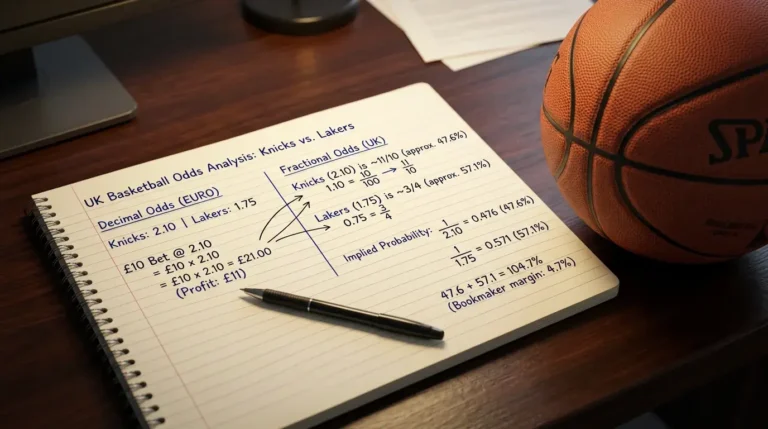 UK Basketball Odds Analysis: Knicks vs. Lakers
Decimal Odds (EURO)
Knicks: 2.10 | Lakers: 1.75
£10 Bet @ 2.10
= £10 x 2.10
= £10 x 2.10 = £21.00
(Profit: £11)
Fractional Odds (UK)
Knicks (2.10) is ~11/10 (approx. 47.6%)
1.10 = 10/100 → 11/10
Lakers (1.75) is ~3/4 (approx. 57.1%)
0.75 = 3/4
Implied Probability: 1/2.10 = 0.476 (47.6%)
1/1.75 = 0.571 (57.1%)
47.6 + 57.1 = 104.7%
(Bookmaker margin: 4.7%)
SPA